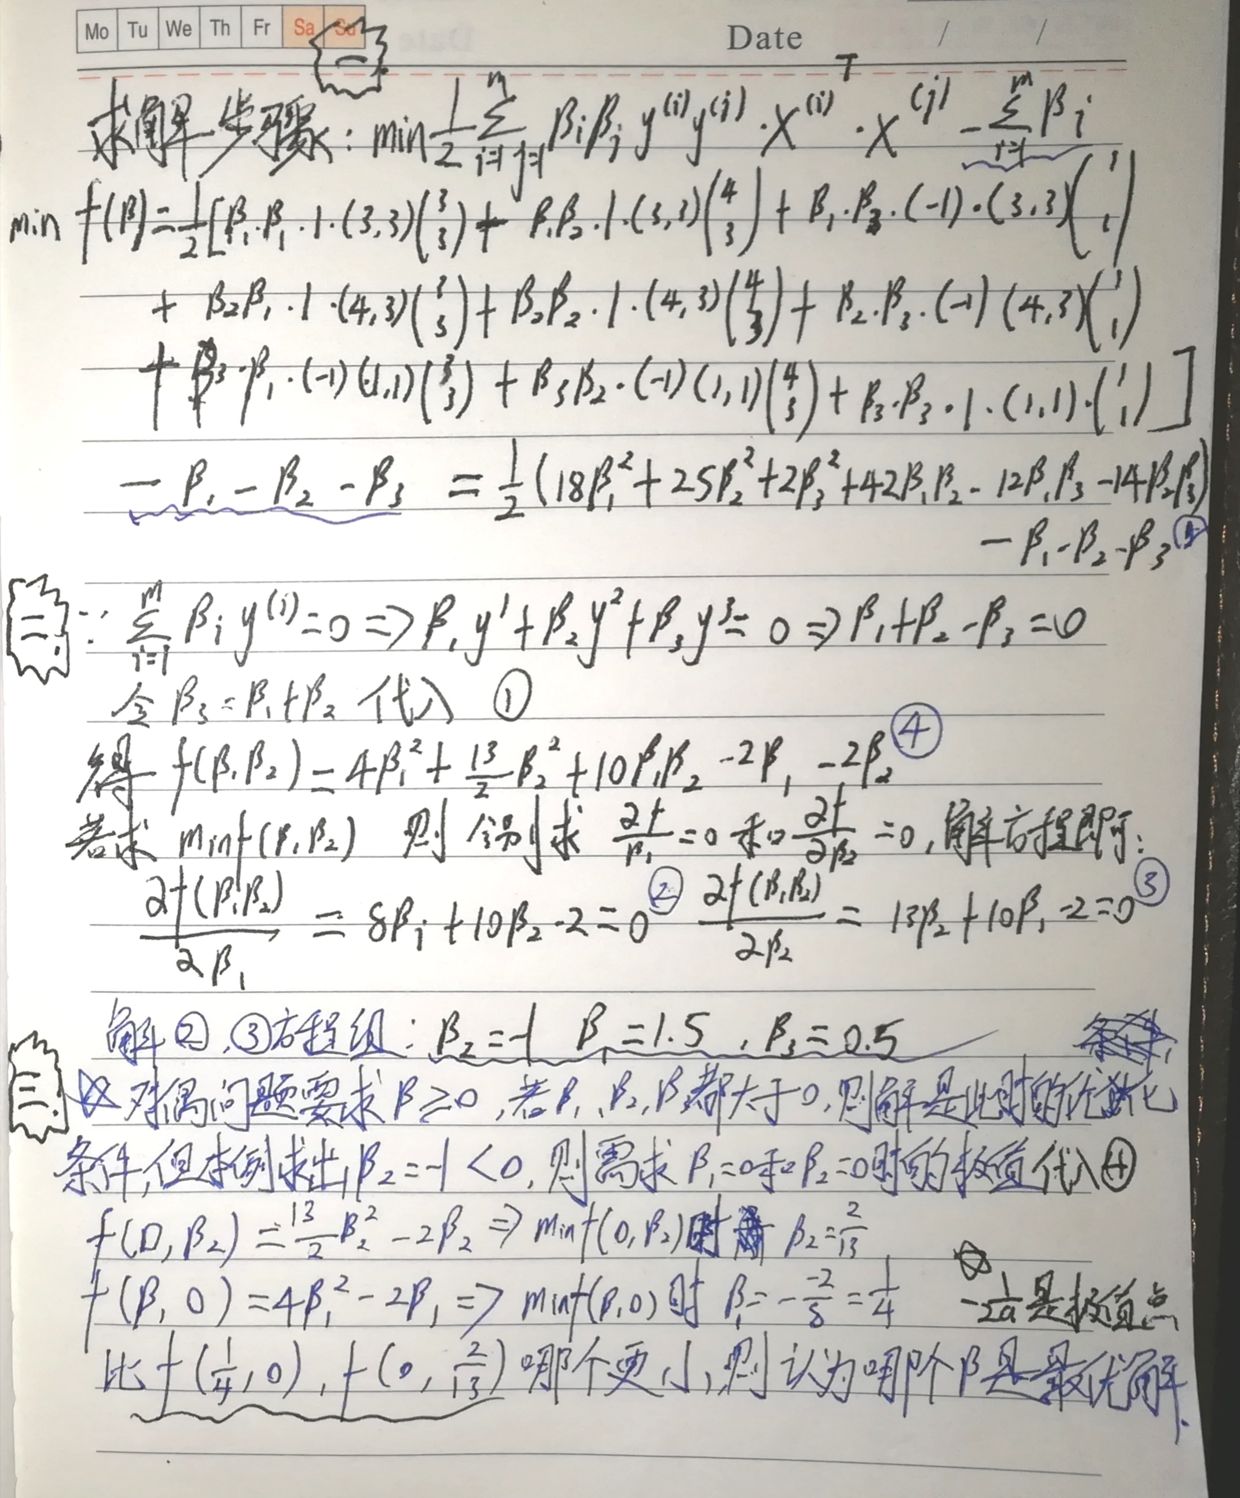 Mo Tu We Th Fr Sa Su
Date / /
一
求解步骤: min 1/2 Σ_{i=1}^{m} Σ_{j=1} βiβj y^(i) y^(j) · X^(i)T · X^(j) - Σ_{i=1}^{m} βi
min f(β) = 1/2 [β1·β1·1·(3,3)(3 3) + β1β2·1·(3,3)(4 3) + β1·β3·(-1)·(3,3)(1 1)
+ β2β1·1·(4,3)(3 3) + β2β2·1·(4,3)(4 3) + β2·β3·(-1)(4,3)(1 1)
+ β3·β1·(-1)(1,1)(3 3) + β3β2·(-1)(1,1)(4 3) + β3·β3·1·(1,1)·(1 1)]
- β1 - β2 - β3 = 1/2 (18β1² + 25β2² + 2β3² + 42β1β2 - 12β1β3 - 14β2β3)
- β1 - β2 - β3 ①
二 ∵ Σ_{i=1}^{m} βi y^(i) = 0 => β1y¹ + β2y² + β3y³ = 0 => β1+β2-β3=0
令 β3=β1+β2 代入 ①
得 f(β1β2) = 4β1² + 13/2 β2² + 10β1β2 - 2β1 - 2β2 ④
若求 minf(β1β2) 则分别求 ∂f/β1 = 0 和 ∂f/∂β2 = 0, 解方程即可:
∂f(β1β2)/∂β1 = 8β1 + 10β2 - 2 = 0 ② ∂f(β1β2)/∂β2 = 13β2 + 10β1 - 2 = 0 ③
解②、③方程组: β2=-1 β1=1.5, β3=0.5
三 对偶问题要求β≥0, 若β1、β2、β3都大于0, 则解是此时的优化
条件, 但本例求出β2=-1<0, 则需求β1=0和β2=0时的极值代入④
f(0, β2) = 13/2 β2² - 2β2 => minf(0, β2)时 β2=2/13
f(β1, 0) = 4β1² - 2β1 => minf(β1,0)时 β1=- -2/8 = 1/4 -1/2a是极值点
比f(1/4,0), f(0, 2/13)哪个更小, 则认为哪个β是最优解.